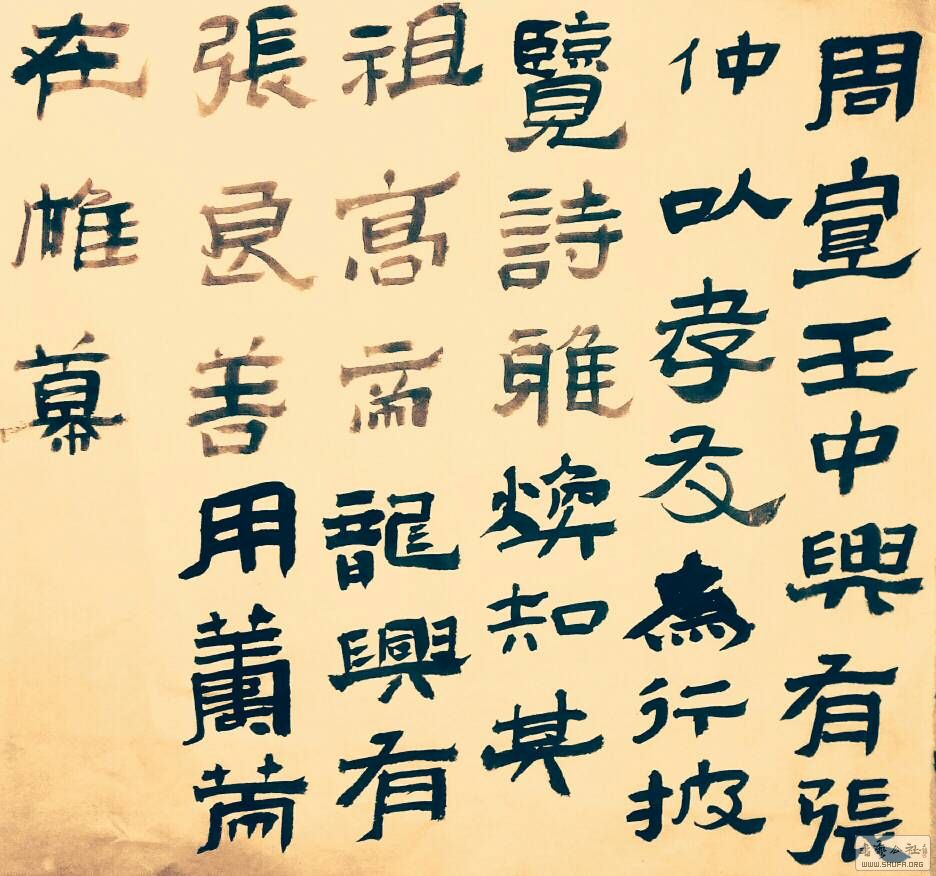 周宣王中興有張
仲以孝友為行披
覽詩雅煥知其
祖高帝龍興有
張良善用籌策
在帷幕
WWW.SHUFA.ORG